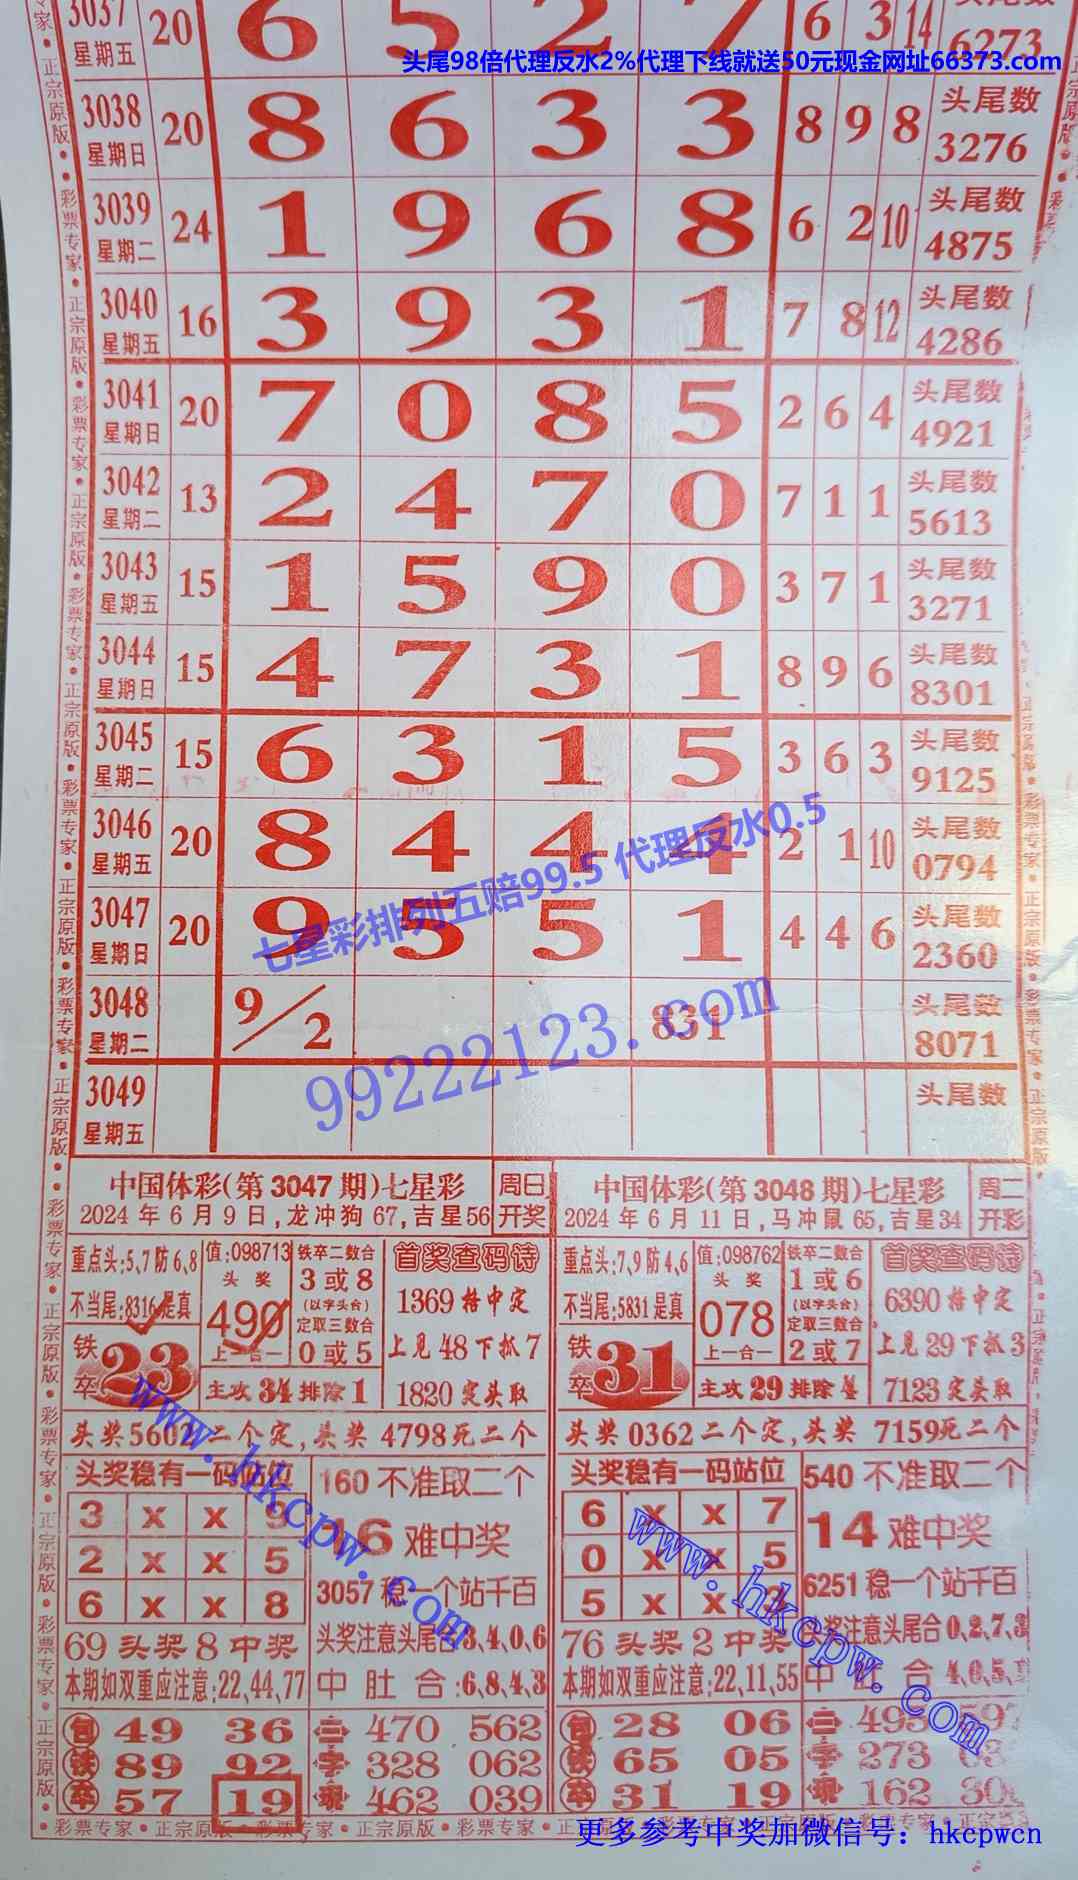 3037 20 6 5 2 7 6 3 14 头尾数
星期五 6273
头尾98倍代理反水2%代理下线就送50元现金网址66373.com
3038 20 8 6 3 3 8 9 8 头尾数
星期日 3276
3039 24 1 9 6 8 6 2 10 头尾数
星期二 4875
3040 16 3 9 3 1 7 8 12 头尾数
星期五 4286
3041 20 7 0 8 5 2 6 4 头尾数
星期日 4921
3042 13 2 4 7 0 7 1 1 头尾数
星期二 5613
3043 15 1 5 9 0 3 7 1 头尾数
星期五 3271
3044 15 4 7 3 1 8 9 6 头尾数
星期日 8301
3045 15 6 3 1 5 3 6 3 头尾数
星期二 9125
3046 20 8 4 4 4 2 1 10 头尾数
星期五 0794
3047 20 9 5 5 1 4 4 6 头尾数
星期日 2360
七星彩排列五赔99.5 代理反水0.5
3048 9/2 831 头尾数
星期二 8071
99222123.com
3049 头尾数
星期五
中国体彩(第3047期)七星彩 周日
2024年6月9日,龙冲狗67,吉星56 开奖
重点头:5,7防6,8
不当尾:8316是真
铁卒 23
值:098713
头奖
490
上一合一
铁卒二数合
3或8
(以字头合)
定取三数合
0或5
主攻34排除1
首奖查码诗
1369格中定
上见48下抓7
1820定头取
头奖5602二个定,头奖4798死二个
头奖稳有一码站位
3 x x 9
2 x x 5
6 x x 8
69头奖8中奖
本期如双重应注意:22,44,77
160不准取二个
16难中奖
3057稳一个站千百
头奖注意头尾合3,4,0,6
中肚合:6,8,4,3
包 49 36
铁 89 92
卒 57 19
三 470 562
字 328 062
现 462 039
中国体彩(第3048期)七星彩 周二
2024年6月11日,马冲鼠65,吉星34 开彩
重点头:7,9防4,6
不当尾:5831是真
铁卒 31
值:098762
头奖
078
上一合一
铁卒二数合
1或6
(以字头合)
定取三数合
2或7
主攻29排除4
首奖查码诗
6390格中定
上见29下抓3
7123定头取
头奖0362二个定,头奖7159死二个
头奖稳有一码站位
6 x x 7
0 x x 5
5 x x 3
76头奖2中奖
本期如双重应注意:22,11,55
540不准取二个
14难中奖
6251稳一个站千百
头奖注意头尾合0,2,7,3
中肚合4,0,5,
包 28 06
铁 65 05
卒 31 19
三 495
字 273
现 162
www.hkcpw.com
www.hkcpw.com
彩票专家·正宗原版·彩票专家·正宗原版·彩票专家·正宗原版·彩票专家·正宗原版
更多参考中奖加微信号：hkcpwcn